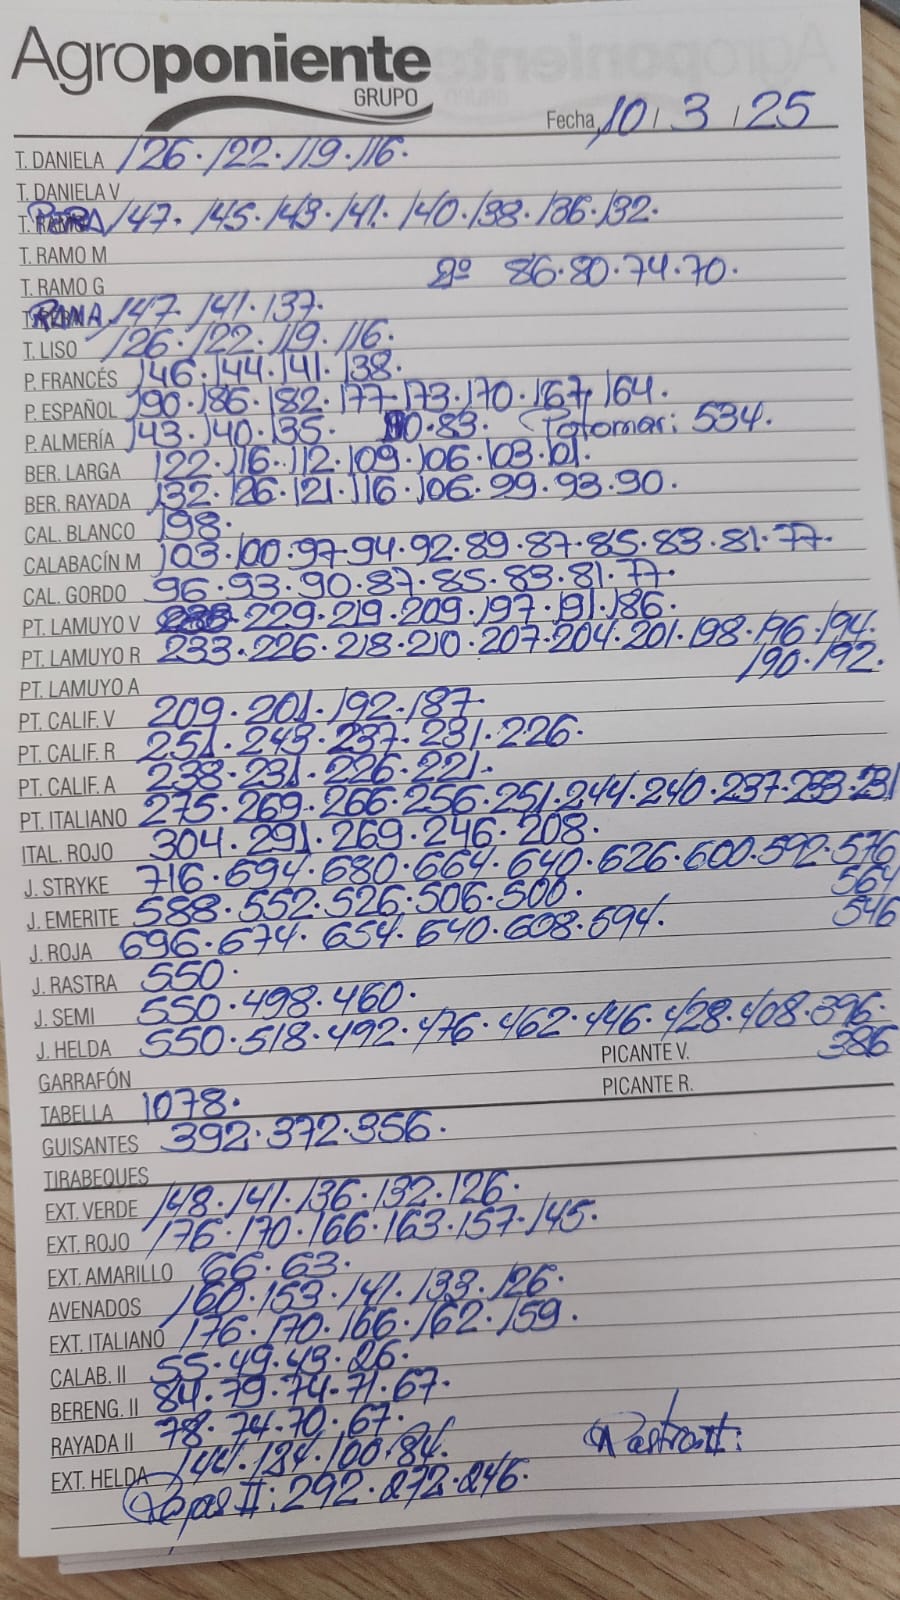 Agroponiente
GRUPO
Fecha 10 / 3 / 25
T. DANELA 126. 122. 119. 116.
T. DANIELA V
PERA 147. 145. 143. 141. 140. 138. 136. 132.
T. RAMO M
T. RAMO G 2º 86. 80. 74. 70.
RAMA 147. 141. 137.
T. LISO 126. 122. 119. 116.
P. FRANCÉS 146. 144. 141. 138.
P. ESPAÑOL 190. 186. 182. 177. 173. 170. 167. 164.
P. ALMERÍA 143. 140. 135. 90. 83. Patomar: 534.
BER. LARGA 122. 116. 112. 109. 106. 103. 101.
BER. RAYADA 132. 126. 121. 116. 106. 99. 93. 90.
CAL. BLANCO 198.
CALABACÍN M 103. 100. 97. 94. 92. 89. 87. 85. 83. 81. 77.
CAL. GORDO 96. 93. 90. 87. 85. 83. 81. 77.
PT. LAMUYO V 229. 219. 209. 197. 191. 186.
PT. LAMUYO R 233. 226. 218. 210. 207. 204. 201. 198. 196. 194.
190. 192.
PT. LAMUYO A
PT. CALIF. V 209. 201. 192. 187.
PT. CALIF. R 251. 243. 237. 231. 226.
PT. CALIF. A 238. 231. 226. 221.
PT. ITALIANO 275. 269. 266. 256. 251. 244. 240. 237. 233. 231
ITAL. ROJO 304. 291. 269. 246. 208.
J. STRYKE 716. 694. 680. 664. 640. 626. 600. 592. 576
564
J. EMERITE 588. 552. 526. 506. 500. 546
J. ROJA 696. 674. 654. 640. 608. 594.
J. RASTRA 550.
J. SEMI 550. 498. 460.
J. HELDA 550. 518. 492. 476. 462. 446. 428. 408. 396.
PICANTE V. 386
GARRAFÓN
PICANTE R.
TABELLA 1078.
GUISANTES 392. 372. 356.
TIRABEQUES
EXT. VERDE 148. 141. 136. 132. 126.
EXT. ROJO 176. 170. 166. 163. 157. 145.
EXT. AMARILLO 66. 63.
AVENADOS 160. 153. 141. 133. 126.
EXT. ITALIANO 176. 170. 166. 162. 159.
CALAB. II 55. 49. 43. 26.
BERENG. II 84. 79. 74. 71. 67.
RAYADA II 78. 74. 70. 67.
EXT. HELDA 144. 134. 100. 84. Rastra II:
Rojas II: 292. 272. 246.